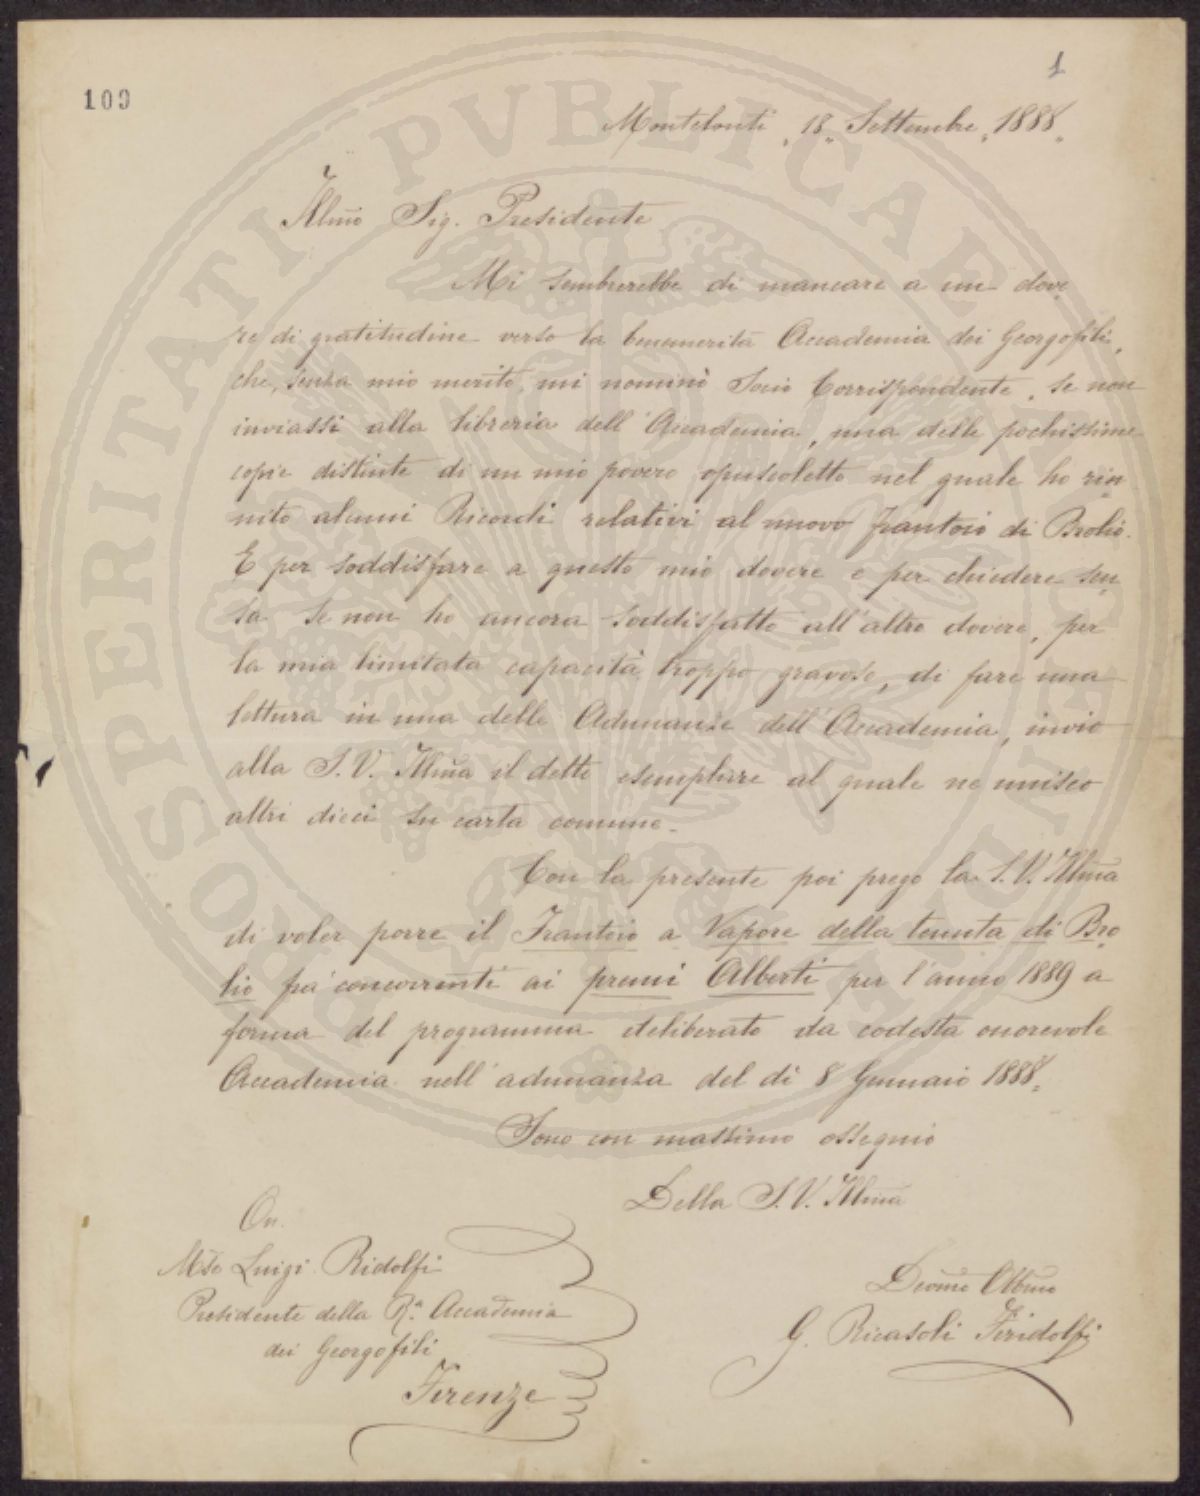 1
109
Montefonti, 18, Settembre, 1888,
Illmo Sig. Presidente
Mi sembrerebbe di mancare a un dove
re di gratitudine verso la benemerita Accademia dei Georgofili,
che, senza mio merito, mi nominò Socio Corrispondente, se non
inviassi alla libreria dell'Accademia, una delle pochissime
copie distinte di un mio povero opuscoletto nel quale ho riu
nito alcuni Ricordi relativi al nuovo frantoio di Brolio.
E per soddisfare a questo mio dovere e per chiedere scu
sa se non ho ancora soddisfatto all'altro dovere, per
la mia limitata capacità troppo gravoso, di fare una
lettura in una delle Adunanze dell'Accademia, invio
alla S.V. Illma il detto esemplare al quale ne unisco
altri dieci su carta comune.
Con la presente poi prego la S.V. Illma
di voler porre il Frantoio a Vapore della tenuta di Bro
lio fra' concorrenti ai premi Alberti per l'anno 1889 a
forma del programma deliberato da codesta onorevole
Accademia nell'adunanza del dì 8 Gennaio 1888,
Sono con massimo ossequio
Della S.V. Illma
On.
Mse Luigi Ridolfi
Presidente della Ra. Accademia
dei Georgofili
Firenze
Devmo Obbmo
G. Ricasoli Firidolfi
PROSPERITATI PVBLICAE